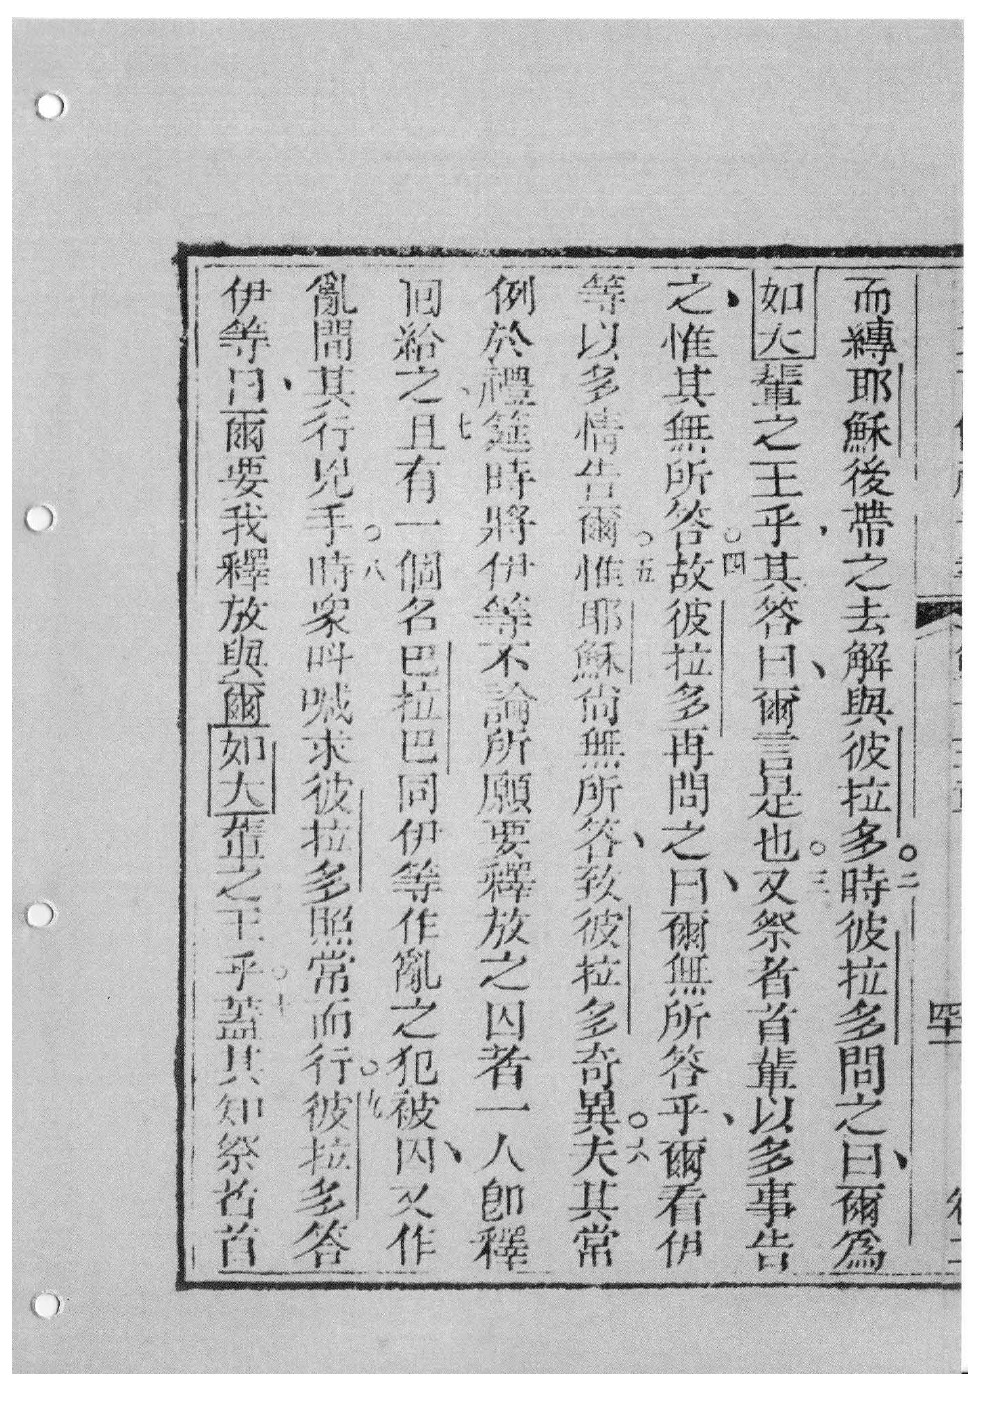 而縛耶穌後帶之去解與彼拉多。二時彼拉多問之曰、爾爲
如大輩之王乎、其答曰、爾言是也○三又祭者首輩以多事告
之、惟其無所答○四故彼拉多再問之、曰、爾無所答乎、爾看伊
等以多情告爾○五惟耶穌尙無所答、致彼拉多奇異○六夫其常
例於禮筵時將伊等不論所願要釋放之囚者一人卽釋
囘給之、七且有一個名巴拉巴同伊等作亂之犯被囚、又作
亂間其行兇手○八時衆呌喊求彼拉多照常而行○九彼拉多答
伊等曰、爾要我釋放與爾如大輩之王乎○十蓋其知祭者首